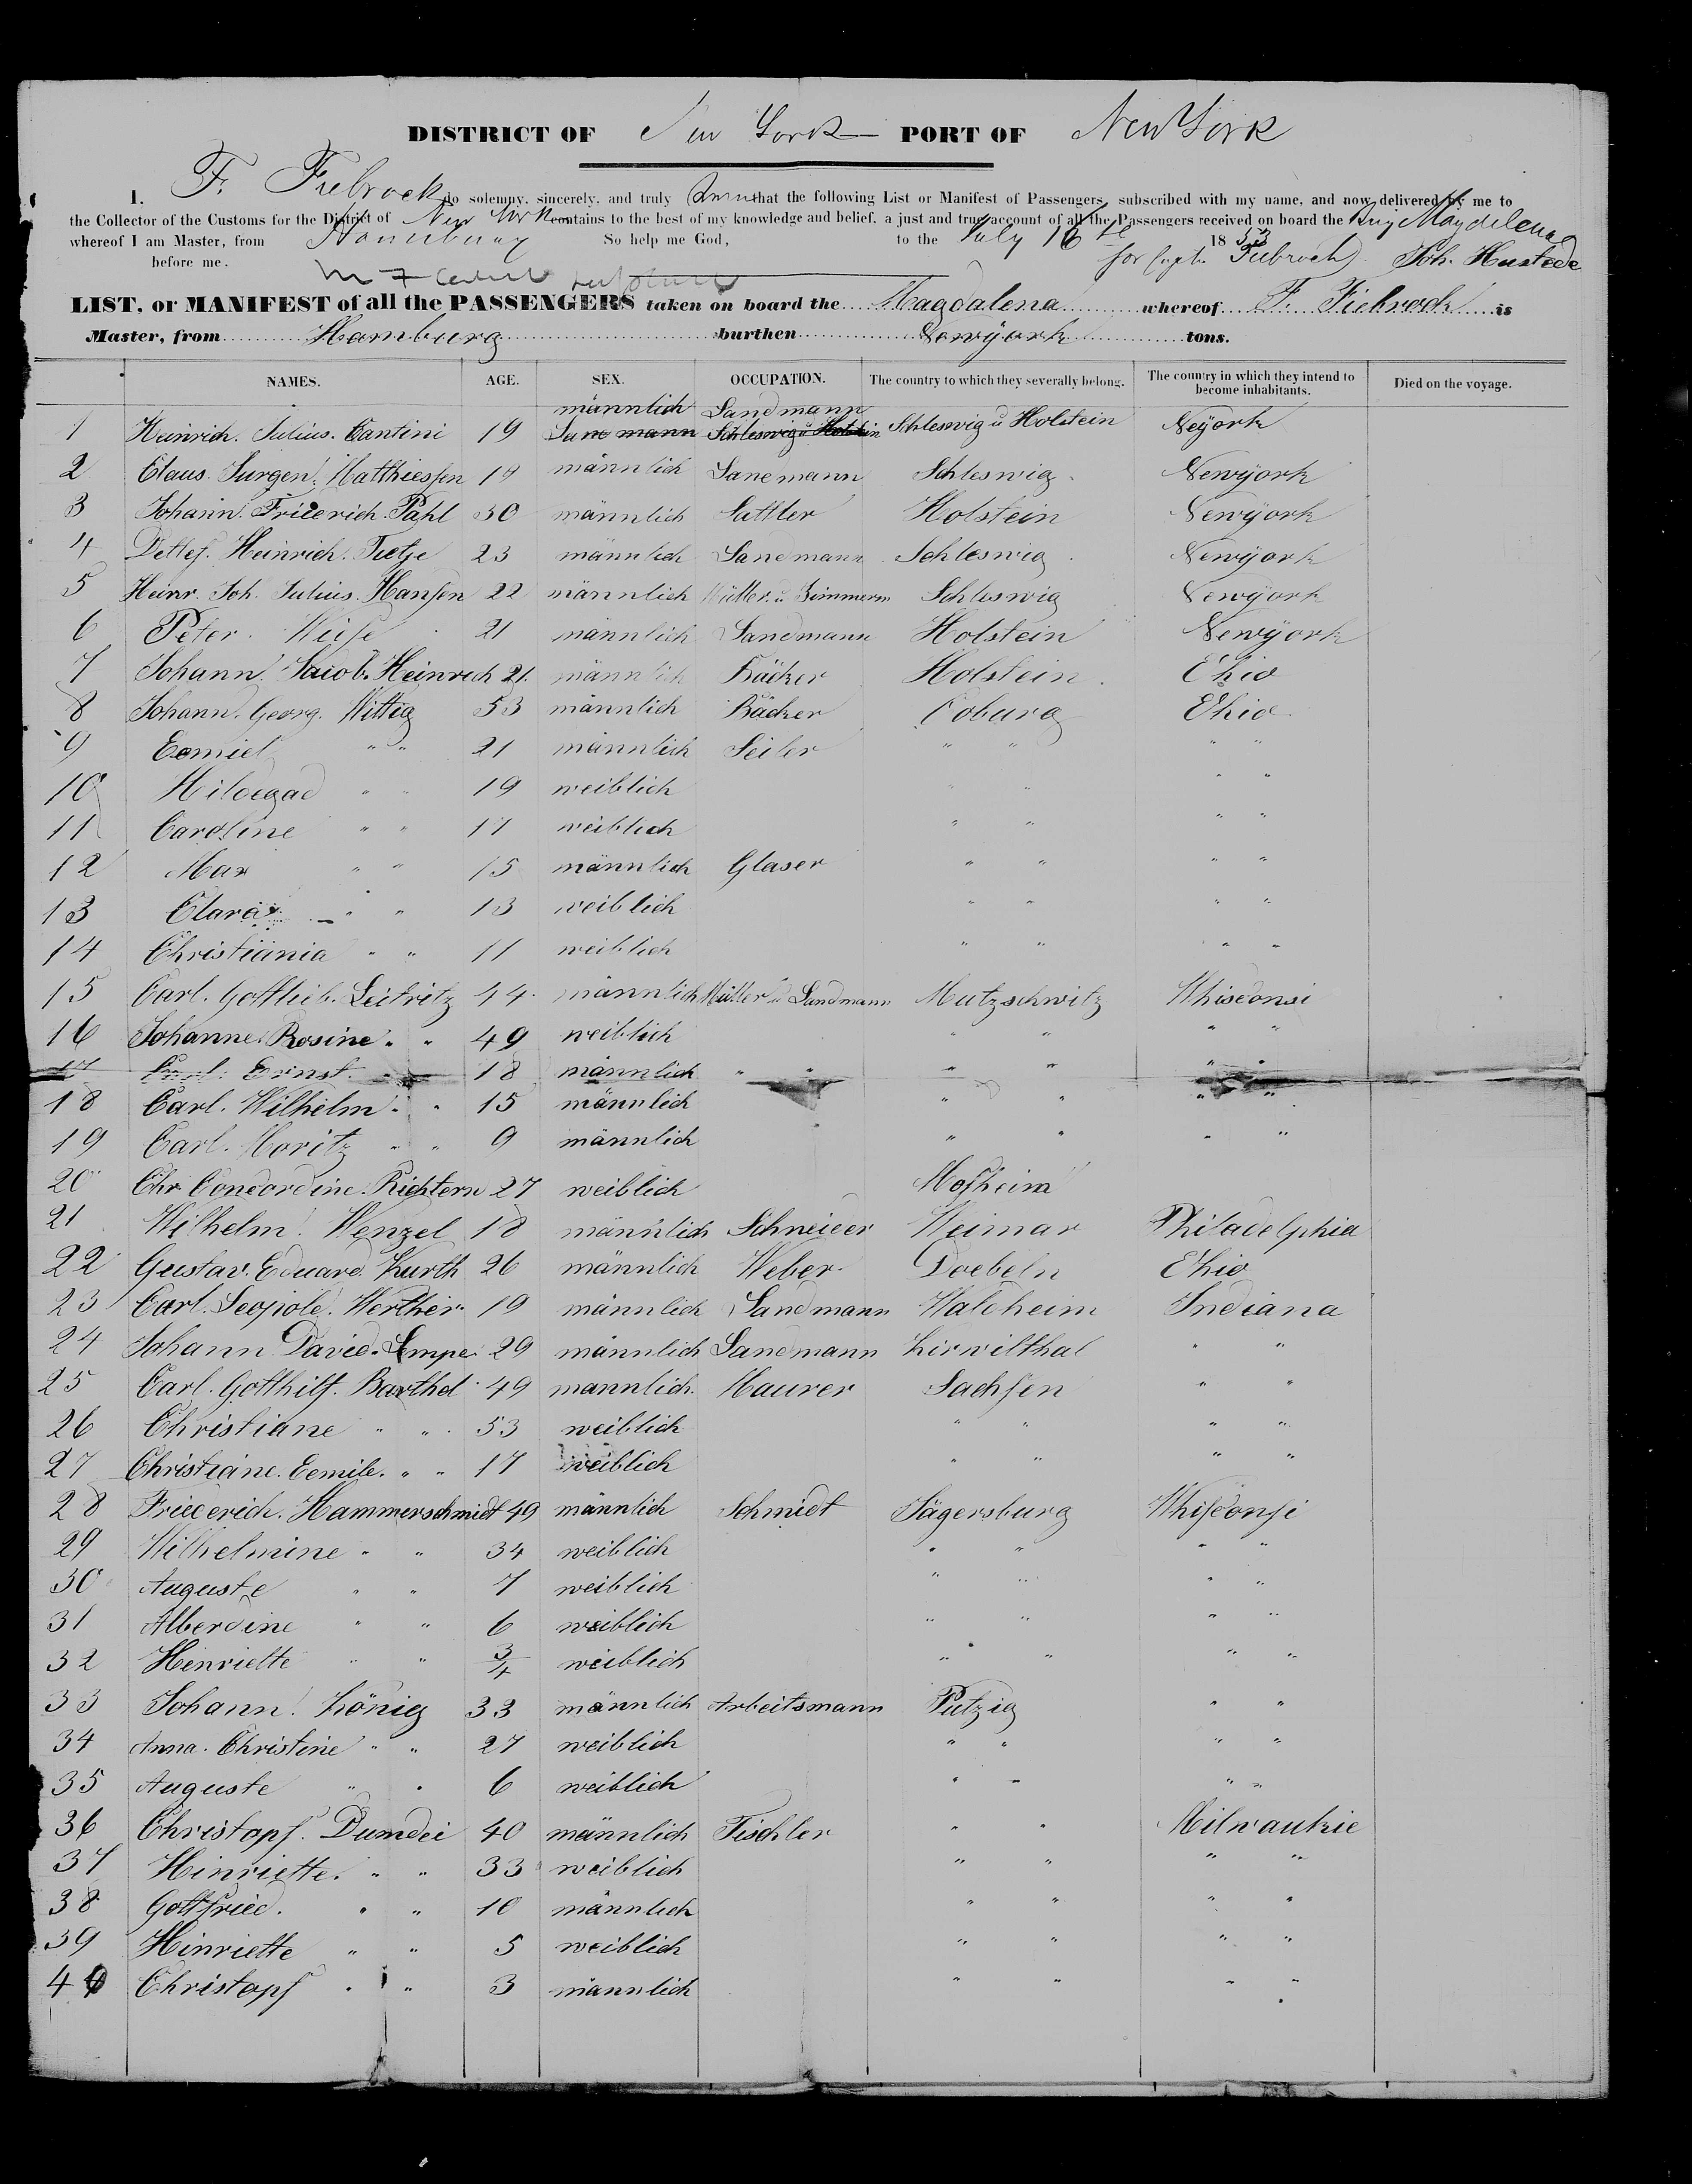 DISTRICT OF New York PORT OF New York
I. F. Fiebrock do solemny, sincerely, and truly that the following List or Manifest of Passengers, subscribed with my name, and now delivered by me to
the Collector of the Customs for the District of New York contains to the best of my knowledge and belief, a just and true account of all the Passengers received on board the Brig Magdelena
whereof I am Master, from Hamburg So help me God, to the July 16th 1853
before me. for Capt. Fiebrock Joh. Hustede
LIST, or MANIFEST of all the PASSENGERS taken on board the Magdalena whereof F. Fiebrock is
Master, from Hamburg burthen Newÿork tons.
NAMES. AGE. SEX. OCCUPATION. The country to which they severally belong. The country in which they intend to become inhabitants. Died on the voyage.
männlich Landmann
1 Heinrich. Julius. Cantini 19 Schleswig u Holstein Neÿork
2 Claus. Jurgen. Matthiessen 19 männlich Landmann Schleswig Newÿork
3 Johann. Friederich. Pahl 30 männlich Sattler Holstein Newÿork
4 Detlef. Heinrich. Tietje 23 männlich Landmann Schleswig Newÿork
5 Heinr. Joh. Julius. Hansen 22 männlich Müller. u. Zimmerm Schleswig Newÿork
6 Peter. Wiese 21 männlich Landmann Holstein Newÿork
7 Johann. Jacob. Heinrich 21. männlich Bäcker Holstein Ohio
8 Johann. Georg. Wittig 53 männlich Bäcker Coburg Ohio
9 Eemiel " " 21 männlich Seiler " " " "
10 Hildegad " " 19 weiblich " " " "
11 Caroline " " 17 weiblich " " " "
12 Max " " 15 männlich Glaser " " " "
13 Clara " " 13 weiblich " " " "
14 Christiania " " 11 weiblich " " " "
15 Carl. Gottlieb. Leitritz 44. männlich Müller u Landmann Mutzschwitz Whisconsi
16 Johanne. Rosine " " 49 weiblich " " " "
17 Carl. Ernst. " 18 männlich " " " " " "
18 Carl. Wilhelm " " 15 männlich " " " "
19 Carl. Moritz " " 9 männlich " " " "
20 Chr. Concordine. Richtern 27 weiblich Mosheim
21 Wilhelm. Wenzel 18 männlich Schneider Weimar Philadelphia
22 Gustav. Eduard. Kurth 26 männlich Weber Doebeln Ohio
23 Carl. Leopold. Werther 19 männlich Landmann Waldheim Indiana
24 Johann David. Lempe 29 männlich Landmann " "
25 Carl. Gotthilf. Barthel 49 mannlich. Maurer Sachsen " "
26 Christiane " " 53 weiblich " " " "
27 Christiane. Eemile. " " 17 weiblich " " " "
28 Friederich. Hammerschmidt 49 männlich Schmidt Jägersburg Whisconsi
29 Wilhelmine " " 34 weiblich " " " "
30 Auguste " " 7 weiblich " " " "
31 Alberdine " " 6 weiblich " " " "
32 Henriette " " 3/4 weiblich " " " "
33 Johann. König 33 männlich Arbeitsmann Putzig " "
34 Anna. Christine " " 27 weiblich " " " "
35 Auguste " " 6 weiblich " " " "
36 Christopf. Dumdei 40 männlich Tischler " " Milwaukie
37 Hinriette. " " 33 weiblich " " " "
38 Gottfried. " " 10 männlich " " " "
39 Hinriette " " 5 weiblich " " " "
40 Christopf " " 3 männlich " " " "